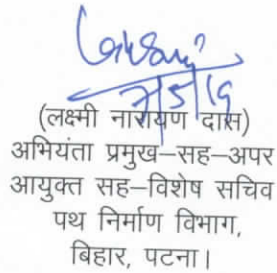 (लक्ष्मी नारायण दास)
अभियंता प्रमुख–सह–अपर
आयुक्त सह–विशेष सचिव
पथ निर्माण विभाग,
बिहार, पटना।